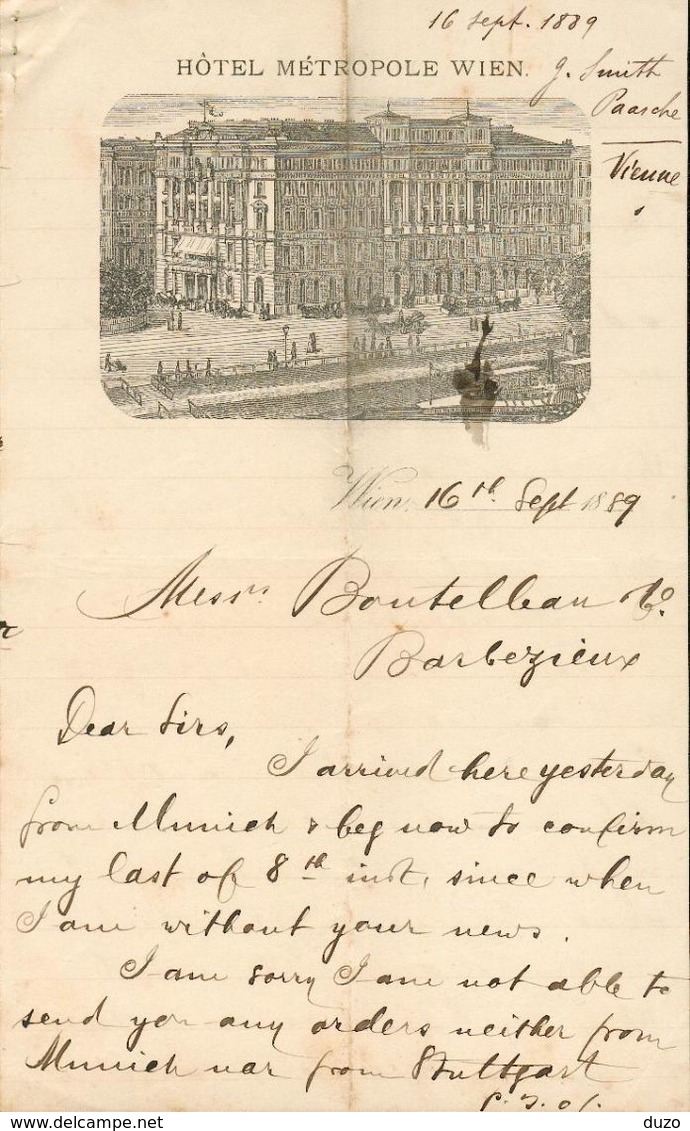 16 sept. 1889
HÔTEL MÉTROPOLE WIEN.
J. Smith
Paasche
Vienne
Wien, 16th Sept 1889
Messrs Boutelleau & Co.
Barbezieux
Dear Sirs,
I arrived here yesterday
from Munich & beg now to confirm
my last of 8th inst, since when
I am without your news.
I am sorry I am not able to
send you any orders neither from
Munich nor from Stuttgart
P.T.O.
duzo